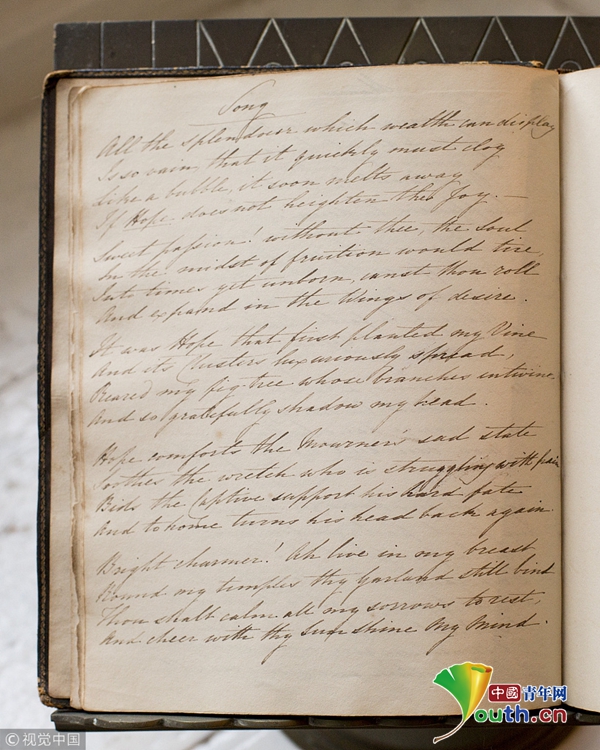 Song
All the splendour which wealth can display
Is so vain, that it quickly must cloy
Like a bubble, it soon melts away
If Hope does not heighten the Joy. —
Sweet passion! without thee, the soul
In the midst of fruition would tire,
Into times yet unborn, canst thou roll
And expand in the Wings of desire.
It was Hope that first planted my Vine
And its Clusters luxuriously spread,
Reared my fig-tree whose branches entwine
And so gratefully shadow my head.
Hope comforts the Mourner's sad state
Soothes the wretch who is struggling with pain
Bids the Captive support his hard fate
And to home turns his head back again
Bright charmer! Ah live in my breast
Round my temples thy garland still bind
Thou shalt calm all my sorrows to rest,
And cheer with thy Sun shine My Mind.
中國青年网
Youth.cn
©视觉中国